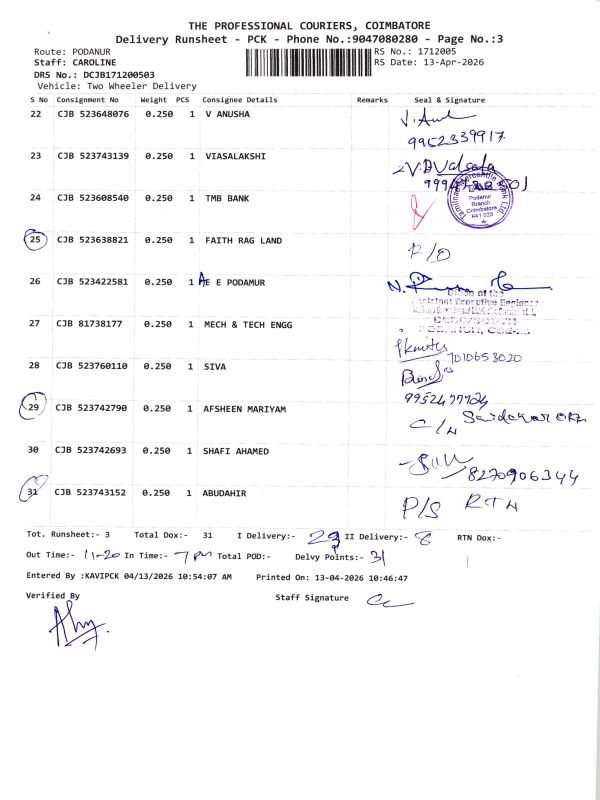 THE PROFESSIONAL COURIERS, COIMBATORE
Delivery Runsheet - PCK - Phone No.:9047080280 - Page No.:3
Route: PODANUR RS No.: 1712005
Staff: CAROLINE RS Date: 13-Apr-2026
DRS No.: DCJB171200503
Vehicle: Two Wheeler Delivery
S No Consignment No Weight PCS Consignee Details Remarks Seal & Signature
22 CJB 523648076 0.250 1 V ANUSHA
9952339917
23 CJB 523743139 0.250 1 VIASALAKSHI
24 CJB 523608540 0.250 1 TMB BANK
Podanur
Branch
Coimbatore
641 023
25 CJB 523638821 0.250 1 FAITH RAG LAND R/O
26 CJB 523422581 0.250 1 AE E PODAMUR
27 CJB 81738177 0.250 1 MECH & TECH ENGG
7010653020
28 CJB 523760110 0.250 1 SIVA
9952477724
29 CJB 523742790 0.250 1 AFSHEEN MARIYAM
30 CJB 523742693 0.250 1 SHAFI AHAMED
8270906344
31 CJB 523743152 0.250 1 ABUDAHIR P/S RTN
Tot. Runsheet:- 3 Total Dox:- 31 I Delivery:- 29 II Delivery:- 8 RTN Dox:-
Out Time:- 11-20 In Time:- 7 PM Total POD:- Delvy Points:- 31
Entered By :KAVIPCK 04/13/2026 10:54:07 AM Printed On: 13-04-2026 10:46:47
Verified By Staff Signature